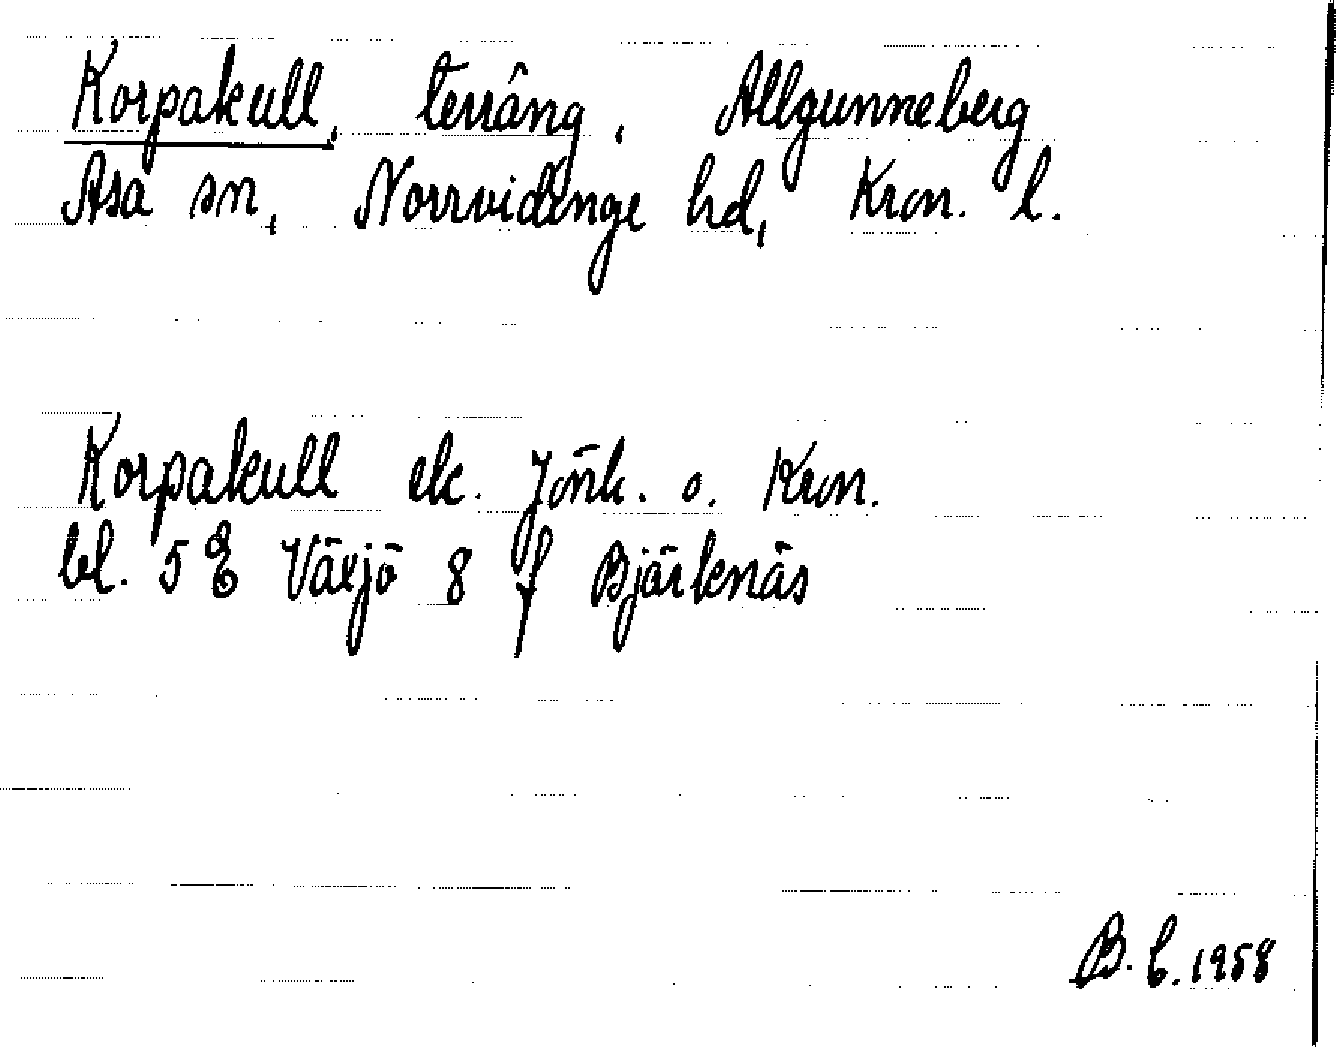 Korpakull, terräng. Allgunneberg
Asa sn, Norrvidinge hd, Kron. l.
Korpakull ek. Jönk. o. Kron.
bl. 5 E Växjö 8 f Bjärkenäs
B. L. 1958